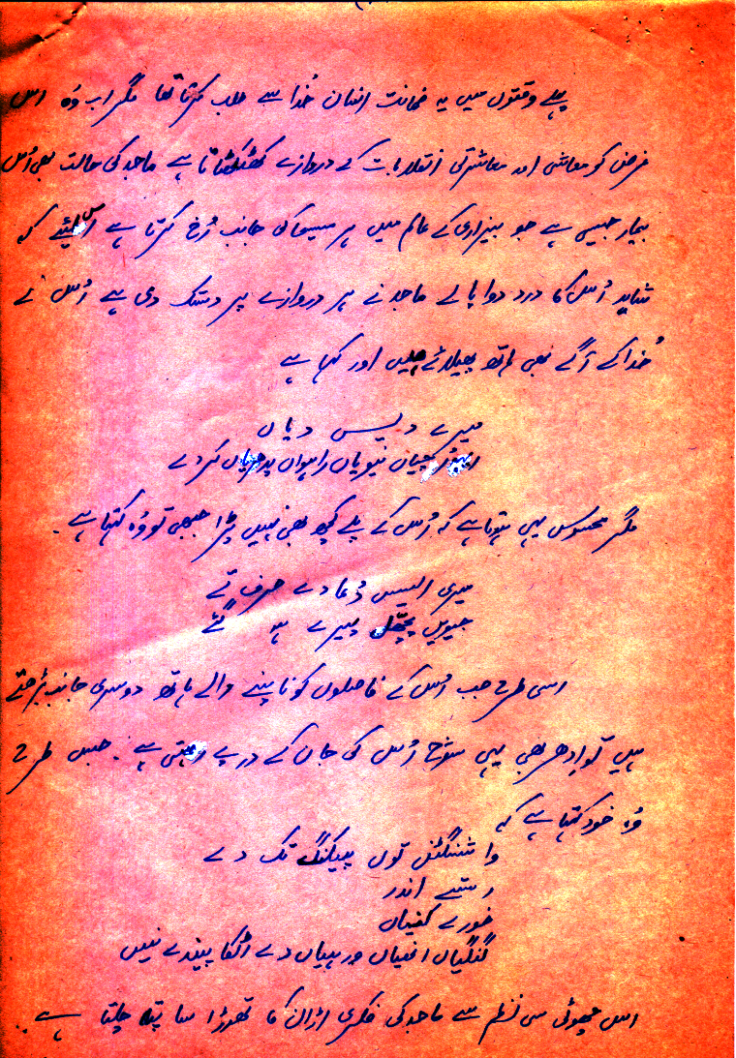 پہلے وقتوں میں یہ ضمانت انسان خُدا سے طلب کرتا تھا مگر اب وُہ اس
غرض کو معاشی اور معاشرتی انقلابات کے دروازے کھٹکھٹاتا ہے ماجد کی حالت بھی اُس
بیمار جیسی ہے جو بیزاری کے عالم میں ہر مسیحا کی جانب رُخ کرتا ہے اس لیئے کہ
شاید اُس کا درد دوا پا لے ماجد نے ہر دروازے پر دستک دی ہے اُس نے
خُدا کے آگے بھی ہاتھ پھیلائے ہیں اور کہا ہے
میرے دیس دیاں
اُچیاں نیویاں راہواں پدھریاں کر دے
مگر محسوس یہی ہوتا ہے کہ اُس کے پلے کچھ بھی نہیں پڑا جبھی تو وُہ کہتا ہے ۔
میری ایس دُعا دے حرف تے
جیویں پتھل پیرے ہو گئے
اسی طرح جب اُس کے فاصلوں کو ناپنے والے ہاتھ دوسری جانب بڑھتے
ہیں تو اِدھر بھی یہی سوچ اُس کی جان کے درپے رہتی ہے ۔ جس طرح
وُہ خود کہتا ہے کہ
واشنگٹن توں پیکنگ تک دے
رستے اندر
خورے کنیاں
گنگیاں انھیاں ورہیاں دے اٹکا پیندے نیں
اس چھوٹی سی نظم سے ماجد کی فکری اڑان کا تھوڑا سا پتہ چلتا ہے ۔